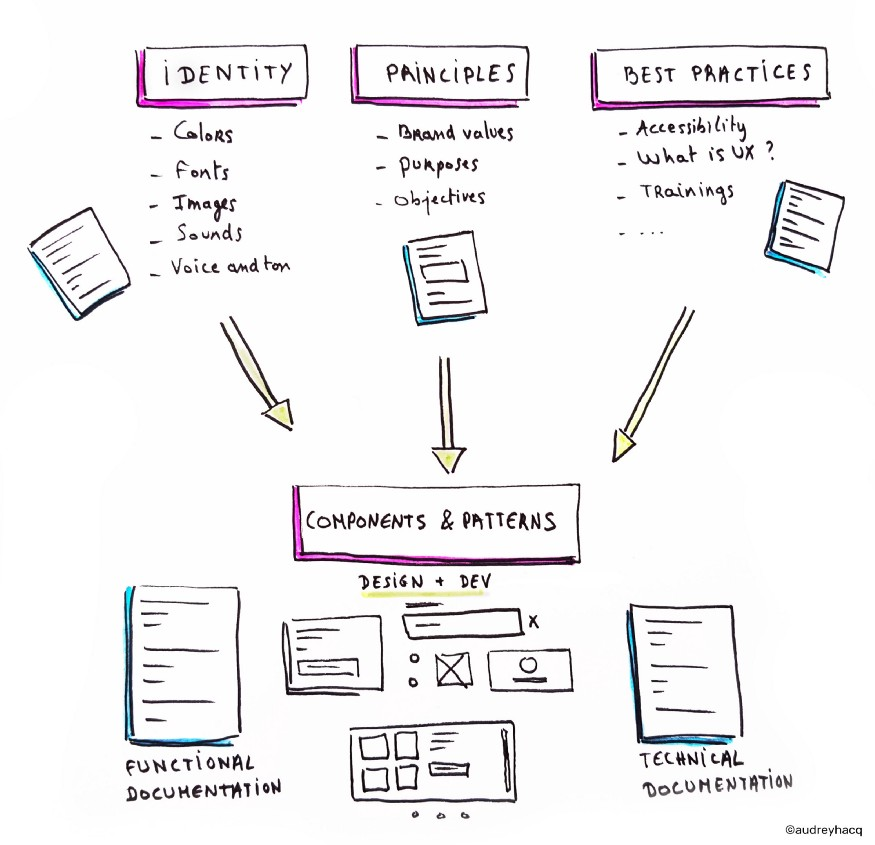 IDENTITY
- Colors
- Fonts
- Images
- Sounds
- Voice and ton
PRINCIPLES
- Brand values
- Purposes
- Objectives
BEST PRACTICES
- Accessibility
- What is UX ?
- Trainings
- ...
COMPONENTS & PATTERNS
DESIGN + DEV
x
FUNCTIONAL
DOCUMENTATION
TECHNICAL
DOCUMENTATION
©audreyhacq